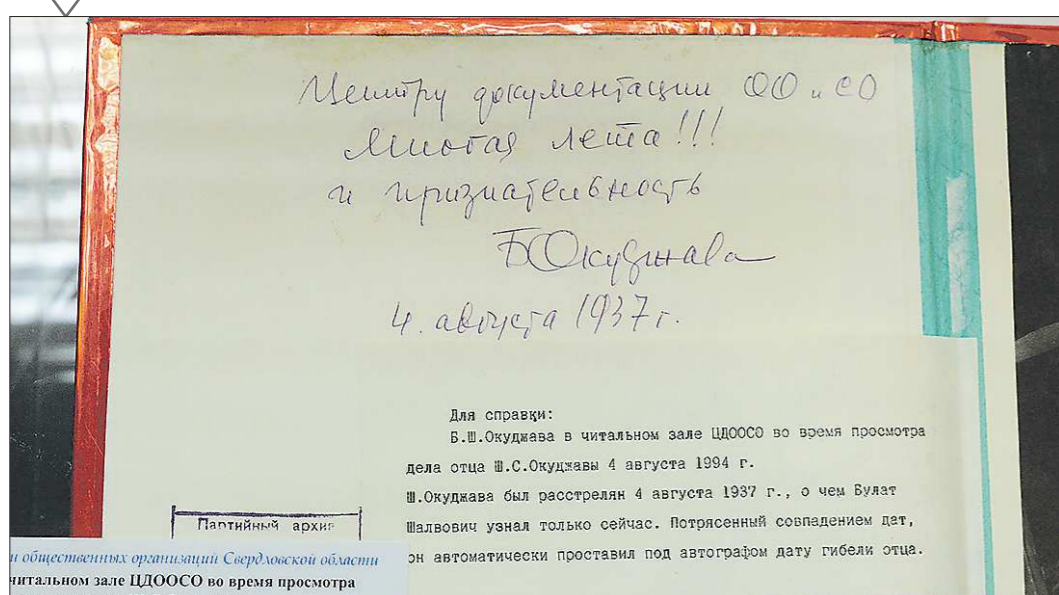 Центру документации ОО и СО
Многая лета!!!
и признательность
БОкуджава
4. августа 1937 г.
Для справки:
Б.Ш.Окуджава в читальном зале ЦДООСО во время просмотра
дела отца Ш.С.Окуджавы 4 августа 1994 г.
Ш.Окуджава был расстрелян 4 августа 1937 г., о чем Булат
Шалвович узнал только сейчас. Потрясенный совпадением дат,
он автоматически проставил под автографом дату гибели отца.
Партийный архив
и общественных организаций Свердловской области
читальном зале ЦДООСО во время просмотра